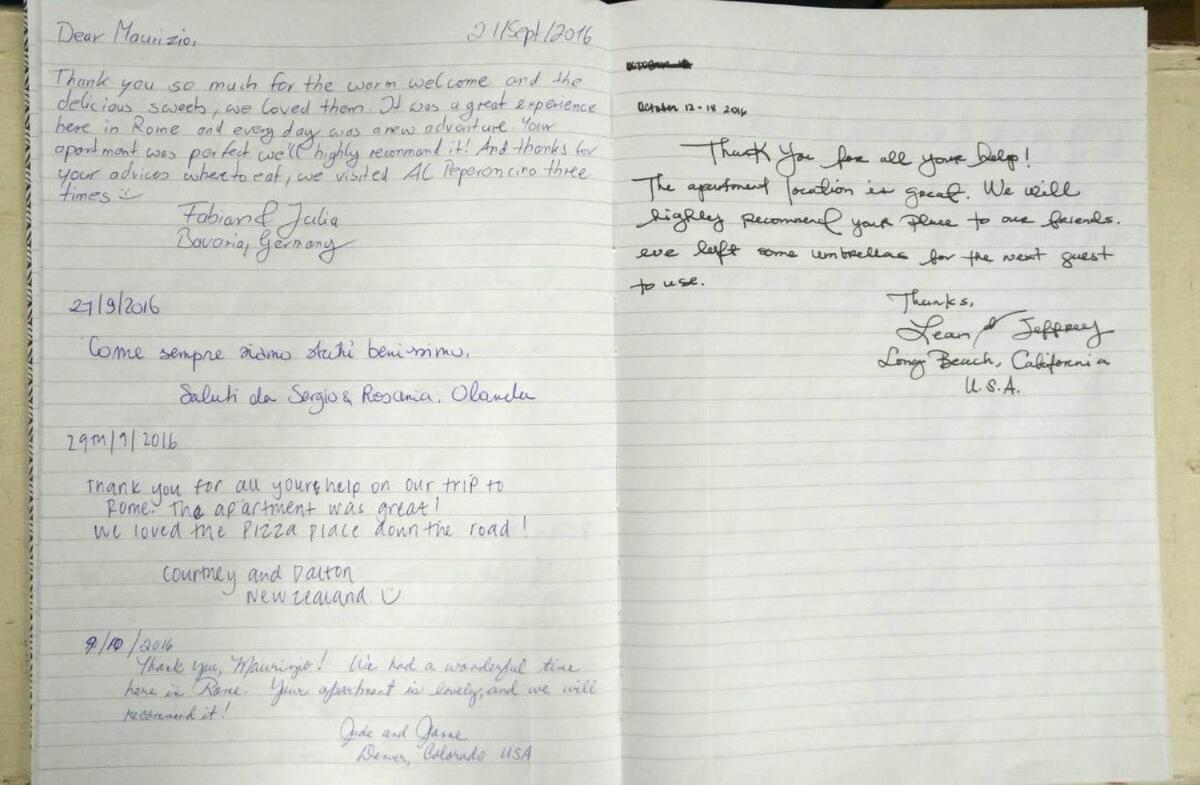 Dear Maurizio,
21/Sept/2016
Thank you so much for the warm welcome and the
delicious sweets, we loved them. It was a great experience
here in Rome and every day was a new adventure. Your
apartment was perfect we'll highly recommand it! And thanks for
your advices where to eat, we visited Al Peperoncino three
times
Fabian & Julia
Bavaria, Germany
27/9/2016
Come sempre siamo stati benissimo.
Saluti da Sergio & Rosania, Olanda
29TH/9/2016
Thank you for all your help on our trip to
Rome. The apartment was great!
We loved the pizza place down the road!
Courtney and Dalton
New Zealand
9/10/2016
Thank you, Maurizio! We had a wonderful time
here in Rome. Your apartment is lovely, and we will
recommend it!
Jude and
Denver, Colorado USA
October 12-18 2016
Thank You for all your help!
The apartment location is great. We will
highly recommend your place to our friends.
We left some umbrellas for the next guest
to use.
Thanks,
Lean & Jeffrey
Long Beach, California
U.S.A.